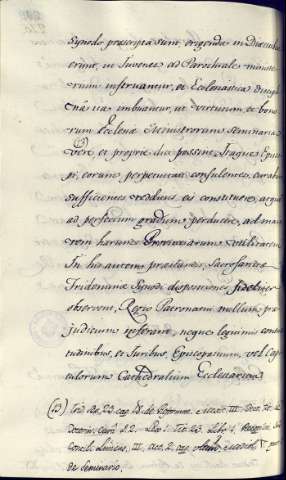 Synodo præscripta sunt, erigenda in Diœcesi
erint, ut Juvenes ad Parochiale ministe-
rium instruantur, et Eclesiastica discipli-
na ita imbuantur, ut virtutum et bono-
rum Ecclesiæ Ministrorum seminaria
vere, et proprie dici possent. Itaque Epis-
pi, eorum perpetuitati consulentes, curabunt
sufficientes redditus eis constituere, atque
ad perfectum gradum perducere, ad maio-
rem harum Provinciarum utilitatem.
In his autem præstandis, Sacrosanctæ
Tridentinæ Synodi dispositiones fideliter
observent, Regio Patronatui nullum præ-
judicium inferant, neque legitimis consue-
tudinibus, et Juribus Episcoporum, vel Capi-
tulorum Cathedralium Ecclesiarum.
Trid. Ses. 23. cap. 18. de Reform.
Lib. 1.
Concil. Limens. III. Act. 2. cap.
de Seminario.